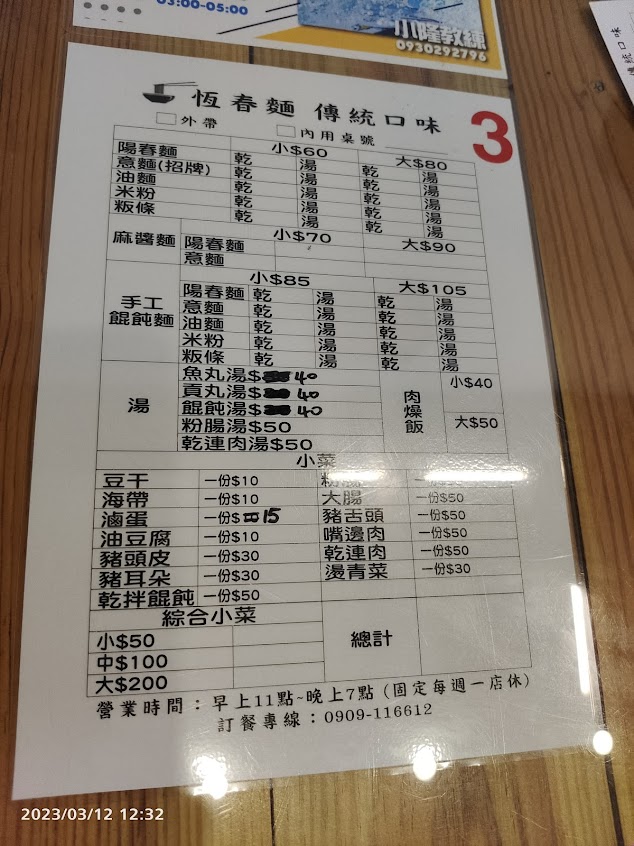 03:00-05:00
小隆教練
0930292796
恆春麵 傳統口味
3
外帶 內用桌號
小$60 大$80
陽春麵 乾 湯 乾 湯
意麵(招牌) 乾 湯 乾 湯
油麵 乾 湯 乾 湯
米粉 乾 湯 乾 湯
粄條 乾 湯 乾 湯
麻醬麵
小$70 大$90
陽春麵
意麵
手工
餛飩麵
小$85 大$105
陽春麵 乾 湯 乾 湯
意麵 乾 湯 乾 湯
油麵 乾 湯 乾 湯
米粉 乾 湯 乾 湯
粄條 乾 湯 乾 湯
湯
魚丸湯$40
貢丸湯$40
餛飩湯$40
粉腸湯$50
乾連肉湯$50
肉燥飯
小$40
大$50
小菜
豆干 一份$10
海帶 一份$10 大腸 一份$50
滷蛋 一份$15 豬舌頭 一份$50
油豆腐 一份$10 嘴邊肉 一份$50
豬頭皮 一份$30 乾連肉 一份$50
豬耳朵 一份$30 燙青菜 一份$30
乾拌餛飩 一份$50
綜合小菜
小$50
中$100
大$200
總計
營業時間：早上11點~晚上7點 (固定每週一店休)
訂餐專線：0909-116612
2023/03/12 12:32